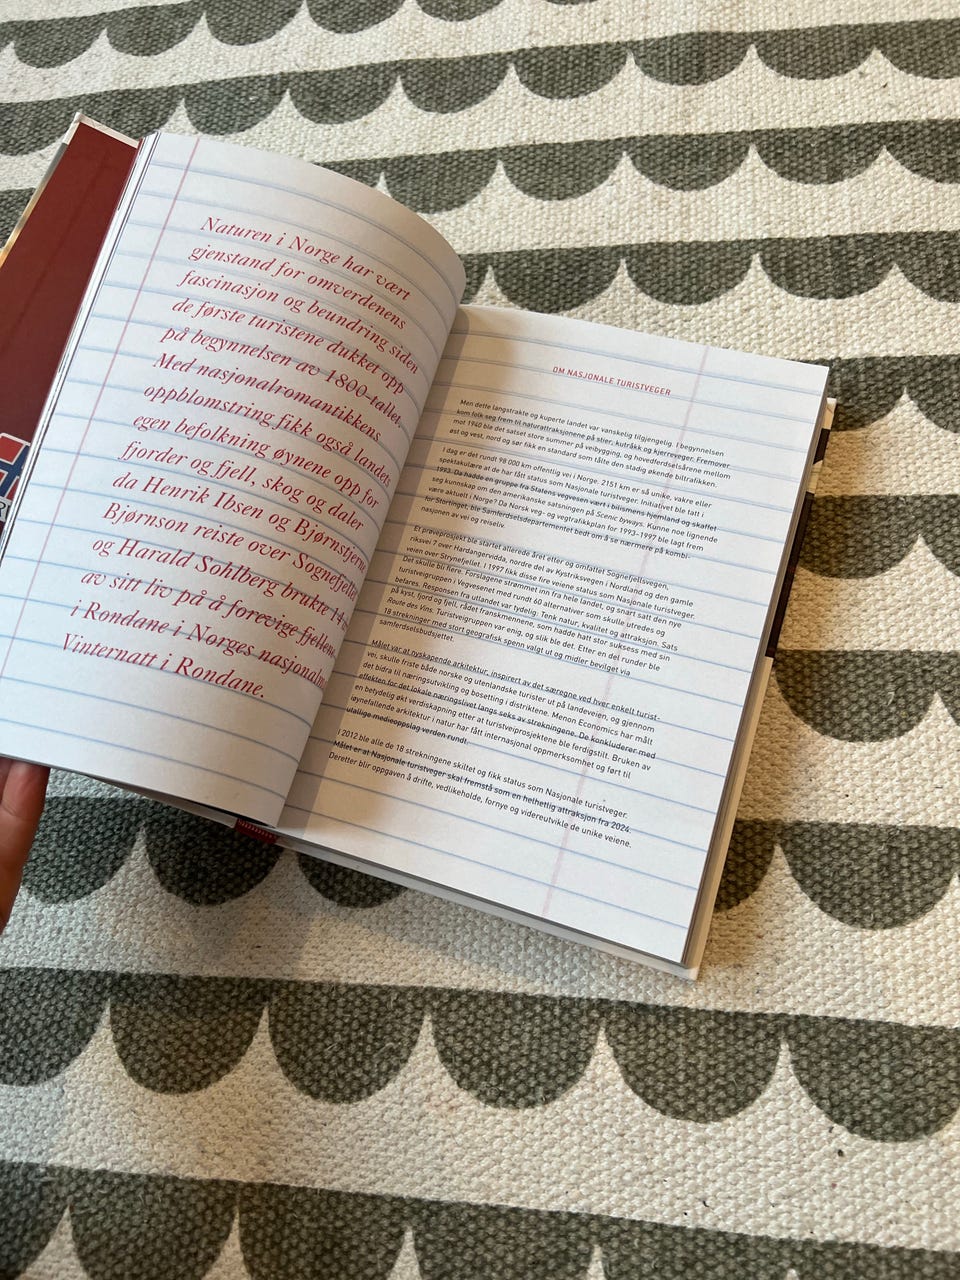 Naturen i Norge har vært
gjenstand for omverdenens
fascinasjon og beundring siden
de første turistene dukket opp
på begynnelsen av 1800-tallet.
Med nasjonalromantikkens
oppblomstring fikk også landets
egen befolkning øynene opp for
fjorder og fjell, skog og daler
da Henrik Ibsen og Bjørnstjerne
Bjørnson reiste over Sognefjellet
og Harald Sohlberg brukte 14 
av sitt liv på å forevige fjellene
i Rondane i Norges
Vinternatt i Rondane.
OM NASJONALE TURISTVEGER
Men dette langstrakte og kuperte landet var vanskelig tilgjengelig. I begynnelsen
kom folk seg frem til naturattraksjonene på stier, kutråkk og kjerreveger. Fremover
mot 1940 ble det satset store summer på veibygging, og hovedferdselsårene mellom
øst og vest, nord og sør fikk en standard som tålte den stadig økende biltrafikken.
I dag er det rundt 98 000 km offentlig vei i Norge. 2151 km er så unike, vakre eller
spektakulære at de har fått status som Nasjonale turistveger. Initiativet ble tatt i
1993. Da hadde en gruppe fra Statens vegvesen vært i bilismens hjemland og skaffet
seg kunnskap om den amerikanske satsningen på Scenic byways. Kunne noe lignende
være aktuelt i Norge? Da Norsk veg- og vegtrafikkplan for 1993–1997 ble lagt frem
for Stortinget, ble Samferdselsdepartementet bedt om å se nærmere på kombi-
nasjonen av vei og reiseliv.
Et prøveprosjekt ble startet allerede året etter og omfattet Sognefjellsvegen,
riksvei 7 over Hardangervidda, nordre del av Kystriksvegen i Nordland og den gamle
veien over Strynefjellet. I 1997 fikk disse fire veiene status som Nasjonale turistveger.
Det skulle bli flere. Forslagene strømmet inn fra hele landet, og snart satt den nye
turistveigruppen i Vegvesenet med rundt 60 alternativer som skulle utredes og
befares. Responsen fra utlandet var tydelig: Tenk natur, kvalitet og attraksjon. Sats
på kyst, fjord og fjell, rådet franskmennene, som hadde hatt stor suksess med sin
Route des Vins. Turistveigruppen var enig, og slik ble det. Etter en del runder ble
18 strekninger med stort geografisk spenn valgt ut og midler bevilget via
samferdselsbudsjettet.
Målet var at nyskapende arkitektur, inspirert av det særegne ved hver enkelt turist-
vei, skulle friste både norske og utenlandske turister ut på landeveien, og gjennom
det bidra til næringsutvikling og bosetting i distriktene. Menon Economics har målt
effekten for det lokale næringslivet langs seks av strekningene. De konkluderer med
en betydelig økt verdiskapning etter at turistveiprosjektene ble ferdigstilt. Bruken av
iøynefallende arkitektur i natur har fått internasjonal oppmerksomhet og ført til
utallige medieoppslag verden rundt.
I 2012 ble alle de 18 strekningene skiltet og fikk status som Nasjonale turistveger.
Målet er at Nasjonale turistveger skal fremstå som en helhetlig attraksjon fra 2024.
Deretter blir oppgaven å drifte, vedlikeholde, fornye og videreutvikle de unike veiene.